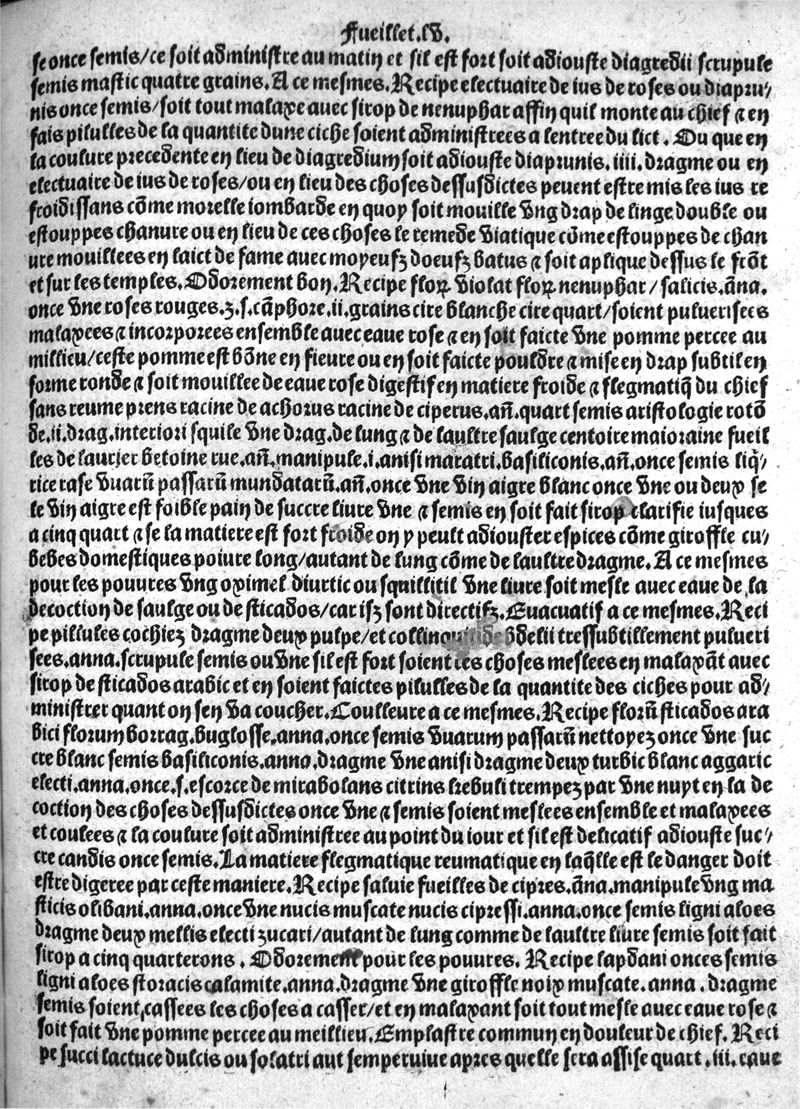 Fueillet.lv.
se once semis/ce soit administre au matin et sil est fort soit adiouste diagredii scrupule
semis mastic quatre grains. A ce mesmes. Recipe electuaire de ius de roses ou diapru⸗
nis once semis/soit tout malaxe auec sirop de nenuphar affin quil monte au chief ⁊ en
fais pilulles de la quantite dune ciche soient administrees a lentree du lict. Ou que en
la coulure precedente en lieu de diagredium soit adiouste diaprunis.iiii.dragme ou en
electuaire de ius de roses/ou en lieu des choses dessusdictes peuent estre mis les ius re
froidissans cōme morelle iombarde en quoy soit mouille vng drap de linge double ou
estouppes chanure ou en lieu de ces choses le remede viatique cōme estouppes de chan
ure mouillees en laict de fame auec moyeufz doeufz batus ⁊ soit aplique dessus le frōt
et sur les temples. Odorement bon. Recipe floꝝ violat floꝝ nenuphar/salicis.āna.
once vne roses rouges.ʒ.s.cāphore.ii.grains cire blanche cire quart/soient puluerisees
malaxees ⁊ incorporees ensemble auec eaue rose ⁊ en soit faicte vne pomme percee au
millieu/ceste pomme est bōne en fieure ou en soit faicte pouldre ⁊ mise en drap subtil en
forme ronde ⁊ soit mouillee de eaue rose digestif en matiere froide ⁊ flegmatiq̄ du chief
sans reume prens racine de achorus racine de ciperus.an̄.quart semis aristologie rotō
de.ii.drag.interiori squile vne drag.de lung ⁊ de laultre saulge centoire maioraine fueil
les de laurier betoine rue.an̄.manipule.i.anisi maratri.basiliconis.an̄.once semis liq̄⸗
rice rase vuarū passarū mundatarū.an̄.once vne vin aigre blanc once vne ou deux se
le vin aigre est foible pain de succre liure vne ⁊ semis en soit fait sirop clarifie iusques
a cinq quart ⁊ se la matiere est fort froide on y peult adiouster espices cōme giroffle cu⸗
bebes domestiques poiure long/autant de lung cōme de laultre dragme. A ce mesmes
pour les pouures vng oximel diurtic ou squillitil vne liure soit mesle auec eaue de la
decoction de saulge ou de sticados/car ilz sont directifz. Euacuatif a ce mesmes. Reci
pe pillules cochiez dragme deux pulpe/et bdelii tressubtillement pulueri
sees.anna.scrupule semis ou vne sil est fort soient les choses meslees en malaxāt auec
sirop de sticados arabic et en soient faictes pilulles de la quantite des ciches pour ad⸗
ministrer quant on sen va coucher. Coulleure a ce mesmes. Recipe florū sticados ara
bici florum borrag.buglosse.anna.once semis vuarum passarū nettoyez once vne suc
cre blanc semis basiliconis.anna.dragme vne anisi dragme deux turbic blanc aggaric
electi.anna.once.s.escorce de mirabolans citrins kebuli trempez par vne nuyt en la de
coction des choses dessusdictes once vne ⁊ semis soient meslees ensemble et malaxees
et coulees ⁊ la coulure soit administree au point du iour et sil est delicatif adiouste suc⸗
cre candis once semis. La matiere flegmatique reumatique en laq̄lle est le danger doit
estre digeree par ceste maniere. Recipe saluie fueilles de cipres.āna.manipule vng ma
sticis olibani.anna.once vne nucis muscate nucis cipressi.anna.once semis ligni aloes
dragme deux mellis electi zucari/autant de lung comme de laultre liure semis soit fait
sirop a cinq quarterons. Odorement pour les pouures. Recipe lapdani onces semis
ligni aloes storacis calamite.anna.dragme vne giroffle noix muscate.anna.dragme
semis soient cassees les choses a casser/et en malaxant soit tout mesle auec eaue rose ⁊
soit fait vne pomme percee au meillieu. Emplastre commun en douleur de chief. Reci
pe succi lactuce dulcis ou solatri aut semperuiue apres quelle sera assise quart.iii.eaue